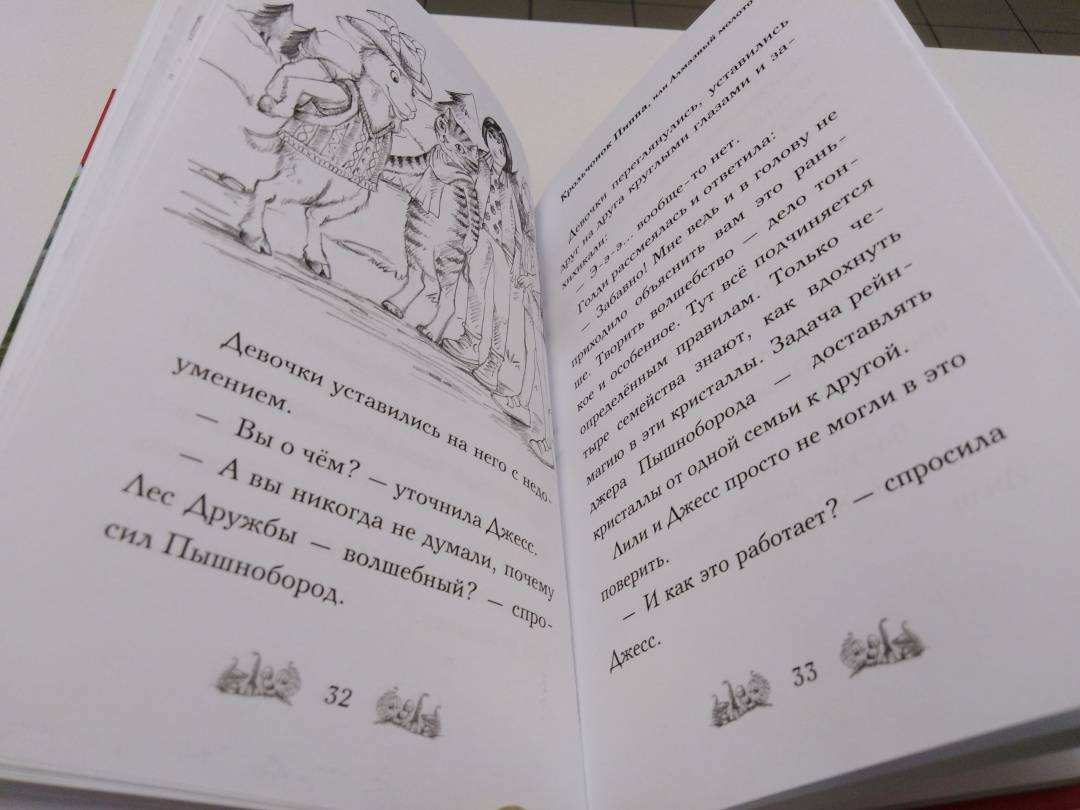 Девочки уставились на него с недо-
умением.
— Вы о чём? — уточнила Джесс.
— А вы никогда не думали, почему
Лес Дружбы — волшебный? — спро-
сил Пышнобород.
32
Крольчонок Пиппа, или Алмазный молото
Девочки переглянулись, уставились
друг на друга круглыми глазами и за-
хихикали:
— Э-э-э... вообще-то нет.
Голли рассмеялась и ответила:
— Забавно! Мне ведь и в голову не
приходило объяснить вам это рань-
ше. Творить волшебство — дело тон-
кое и особенное. Тут всё подчиняется
определённым правилам. Только че-
тыре семейства знают, как вдохнуть
магию в эти кристаллы. Задача рейн-
джера Пышноборода — доставлять
кристаллы от одной семьи к другой.
Лили и Джесс просто не могли в это
поверить.
— И как это работает? — спросила
Джесс.
33